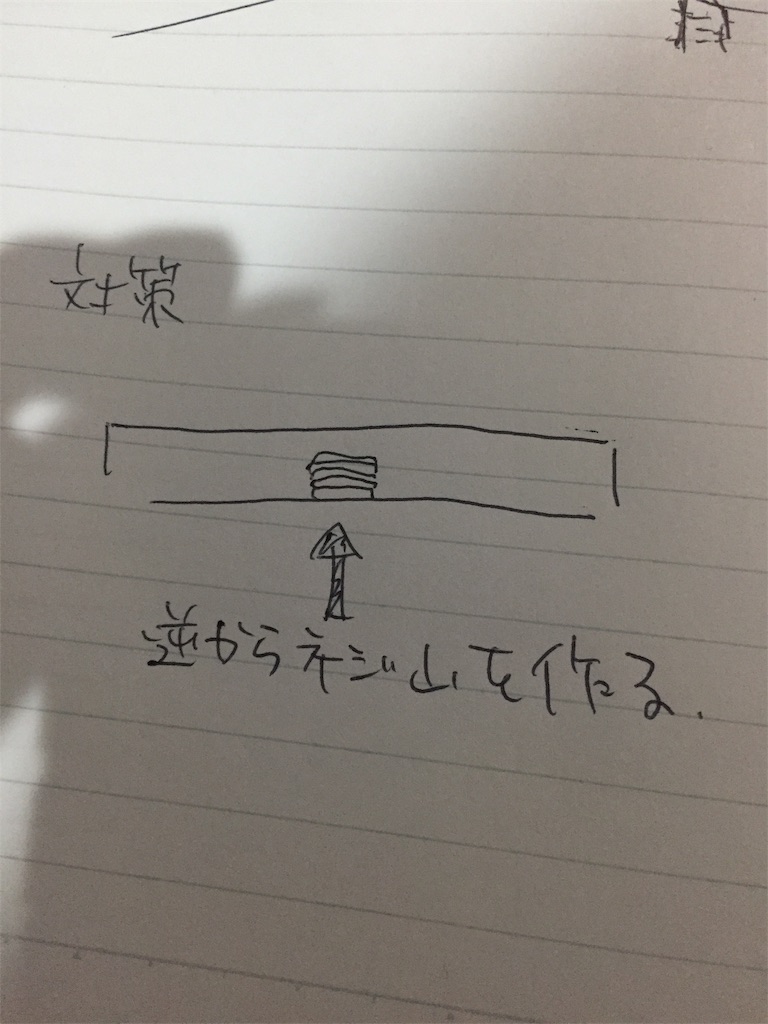 対策
逆からネジ山を作る.